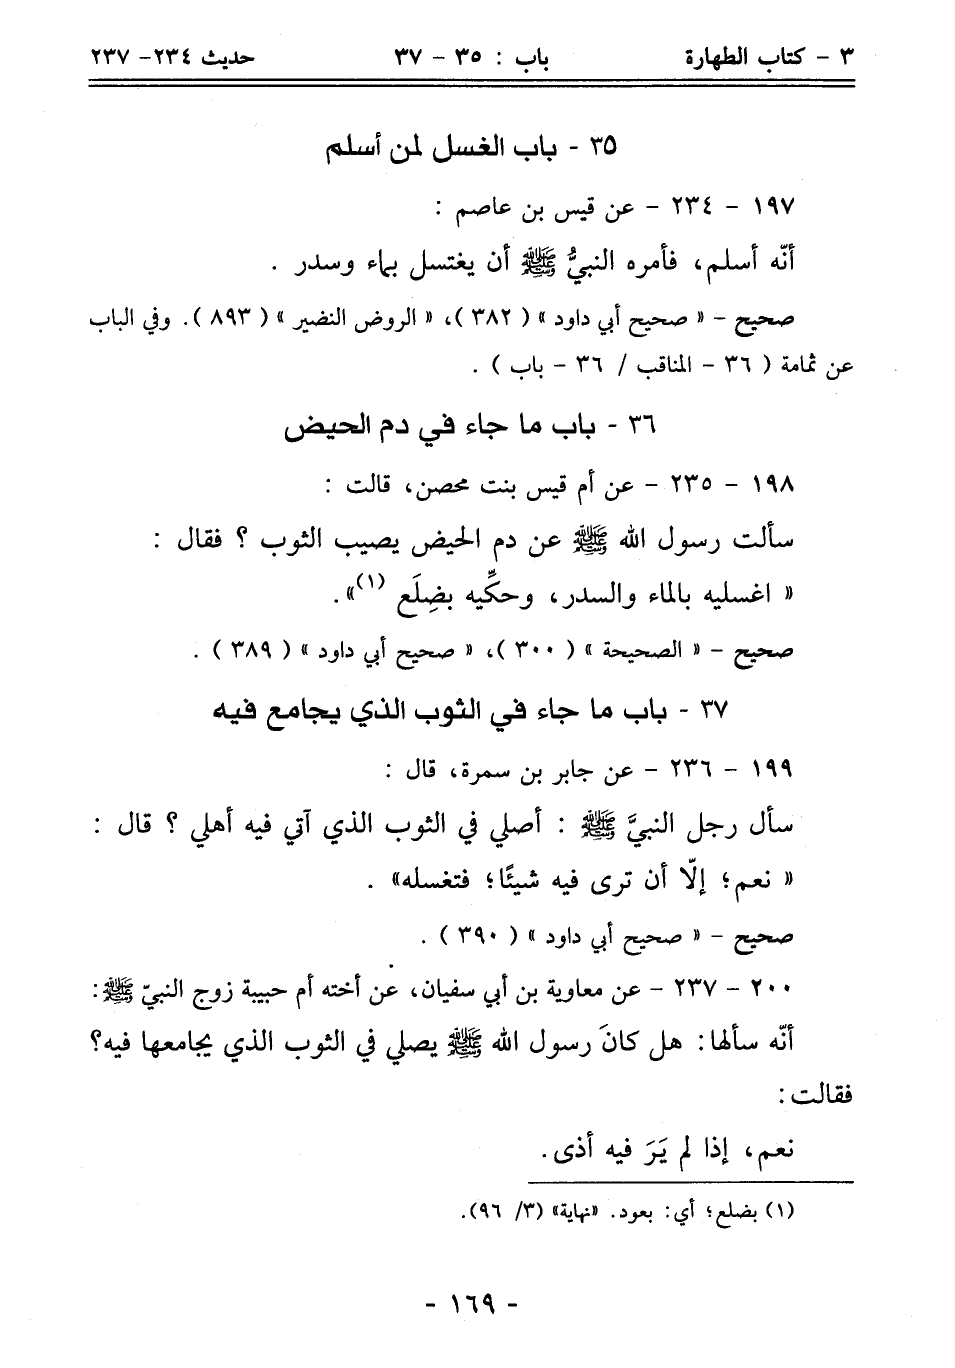 ٣ - كتاب الطهارة باب : ٣٥ - ٣٧ حديث ٢٣٤- ٢٣٧
٣٥ - باب الغسل لمن أسلم
١٩٧ - ٢٣٤ - عن قيس بن عاصم :
أنّه أسلم، فأمره النبيُّ ﷺ أن يغتسل بماء وسدر .
صحيح - « صحيح أبي داود » ( ٣٨٢ )، « الروض النضير » ( ٨٩٣ ). وفي الباب
عن ثمامة ( ٣٦ - المناقب / ٣٦ - باب ) .
٣٦ - باب ما جاء في دم الحيض
١٩٨ - ٢٣٥ - عن أم قيس بنت محصن، قالت :
سألت رسول الله ﷺ عن دم الحيض يصيب الثوب ؟ فقال :
« اغسليه بالماء والسدر، وحكِّيه بضِلَع (١)» .
صحيح - « الصحيحة » ( ٣٠٠ )، « صحيح أبي داود » ( ٣٨٩ ) .
٣٧ - باب ما جاء في الثوب الذي يجامع فيه
١٩٩ - ٢٣٦ - عن جابر بن سمرة، قال :
سأل رجل النبيَّ ﷺ : أصلي في الثوب الذي آتي فيه أهلي ؟ قال :
« نعم؛ إلّا أن ترى فيه شيئًا؛ فتغسله» .
صحيح - « صحيح أبي داود » ( ٣٩٠ ) .
٢٠٠ - ٢٣٧ - عن معاوية بن أبي سفيان، عن أخته أم حبيبة زوج النبيّ ﷺ:
أنّه سألها: هل كانَ رسول الله ﷺ يصلي في الثوب الذي يجامعها فيه؟
فقالت:
نعم، إذا لم يَرَ فيه أذى.
(١) بضلع؛ أي: بعود. «نهاية» (٣/ ٩٦).
- ١٦٩ -